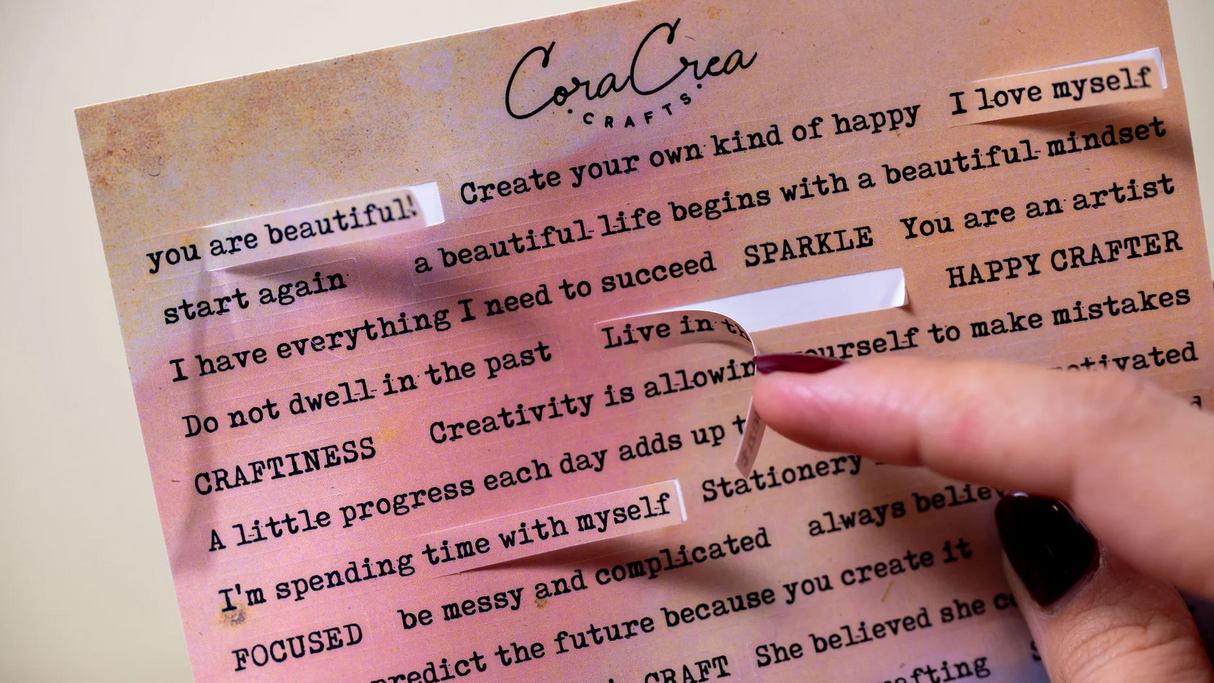 CoraCrea
CRAFTS
you are beautiful! Create your own kind of happy I love myself
start again a beautiful life begins with a beautiful mindset
I have everything I need to succeed SPARKLE You are an artist
Do not dwell in the past Live in HAPPY CRAFTER
CRAFTINESS Creativity is yourself to make mistakes
A little progress each day adds up
I'm spending time with myself Stationery
FOCUSED be messy and complicated always
the future because you create it
CRAFT She believed she